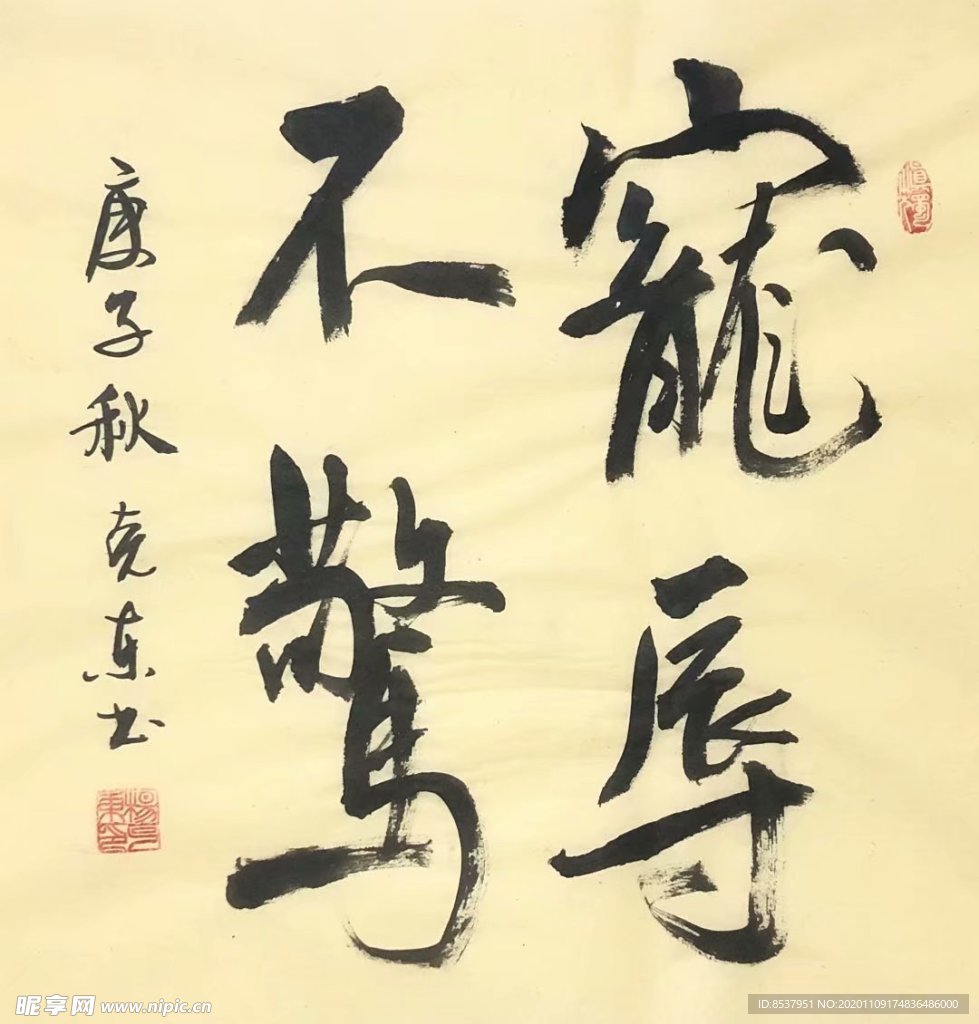 寵辱
不驚
庚子秋 克东书
慎獨
昵享网 www.nipic.cn
ID:8537951 NO:20201109174836486000